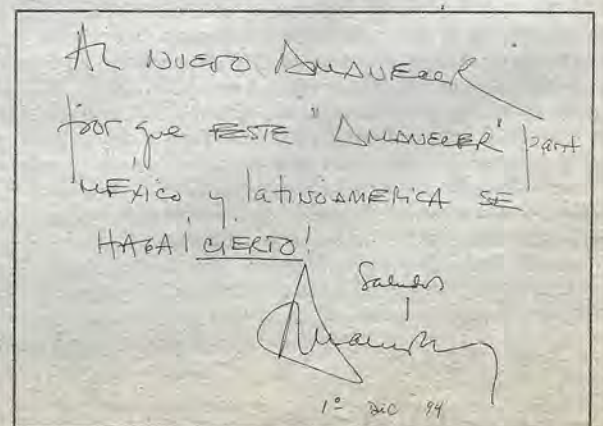 AL NUEVO AMANECER
por que ESTE "AMANECER" para
MÉXICO y latinoamerica SE
HAGA ¡CIERTO!
Saludos
1º DIC 94